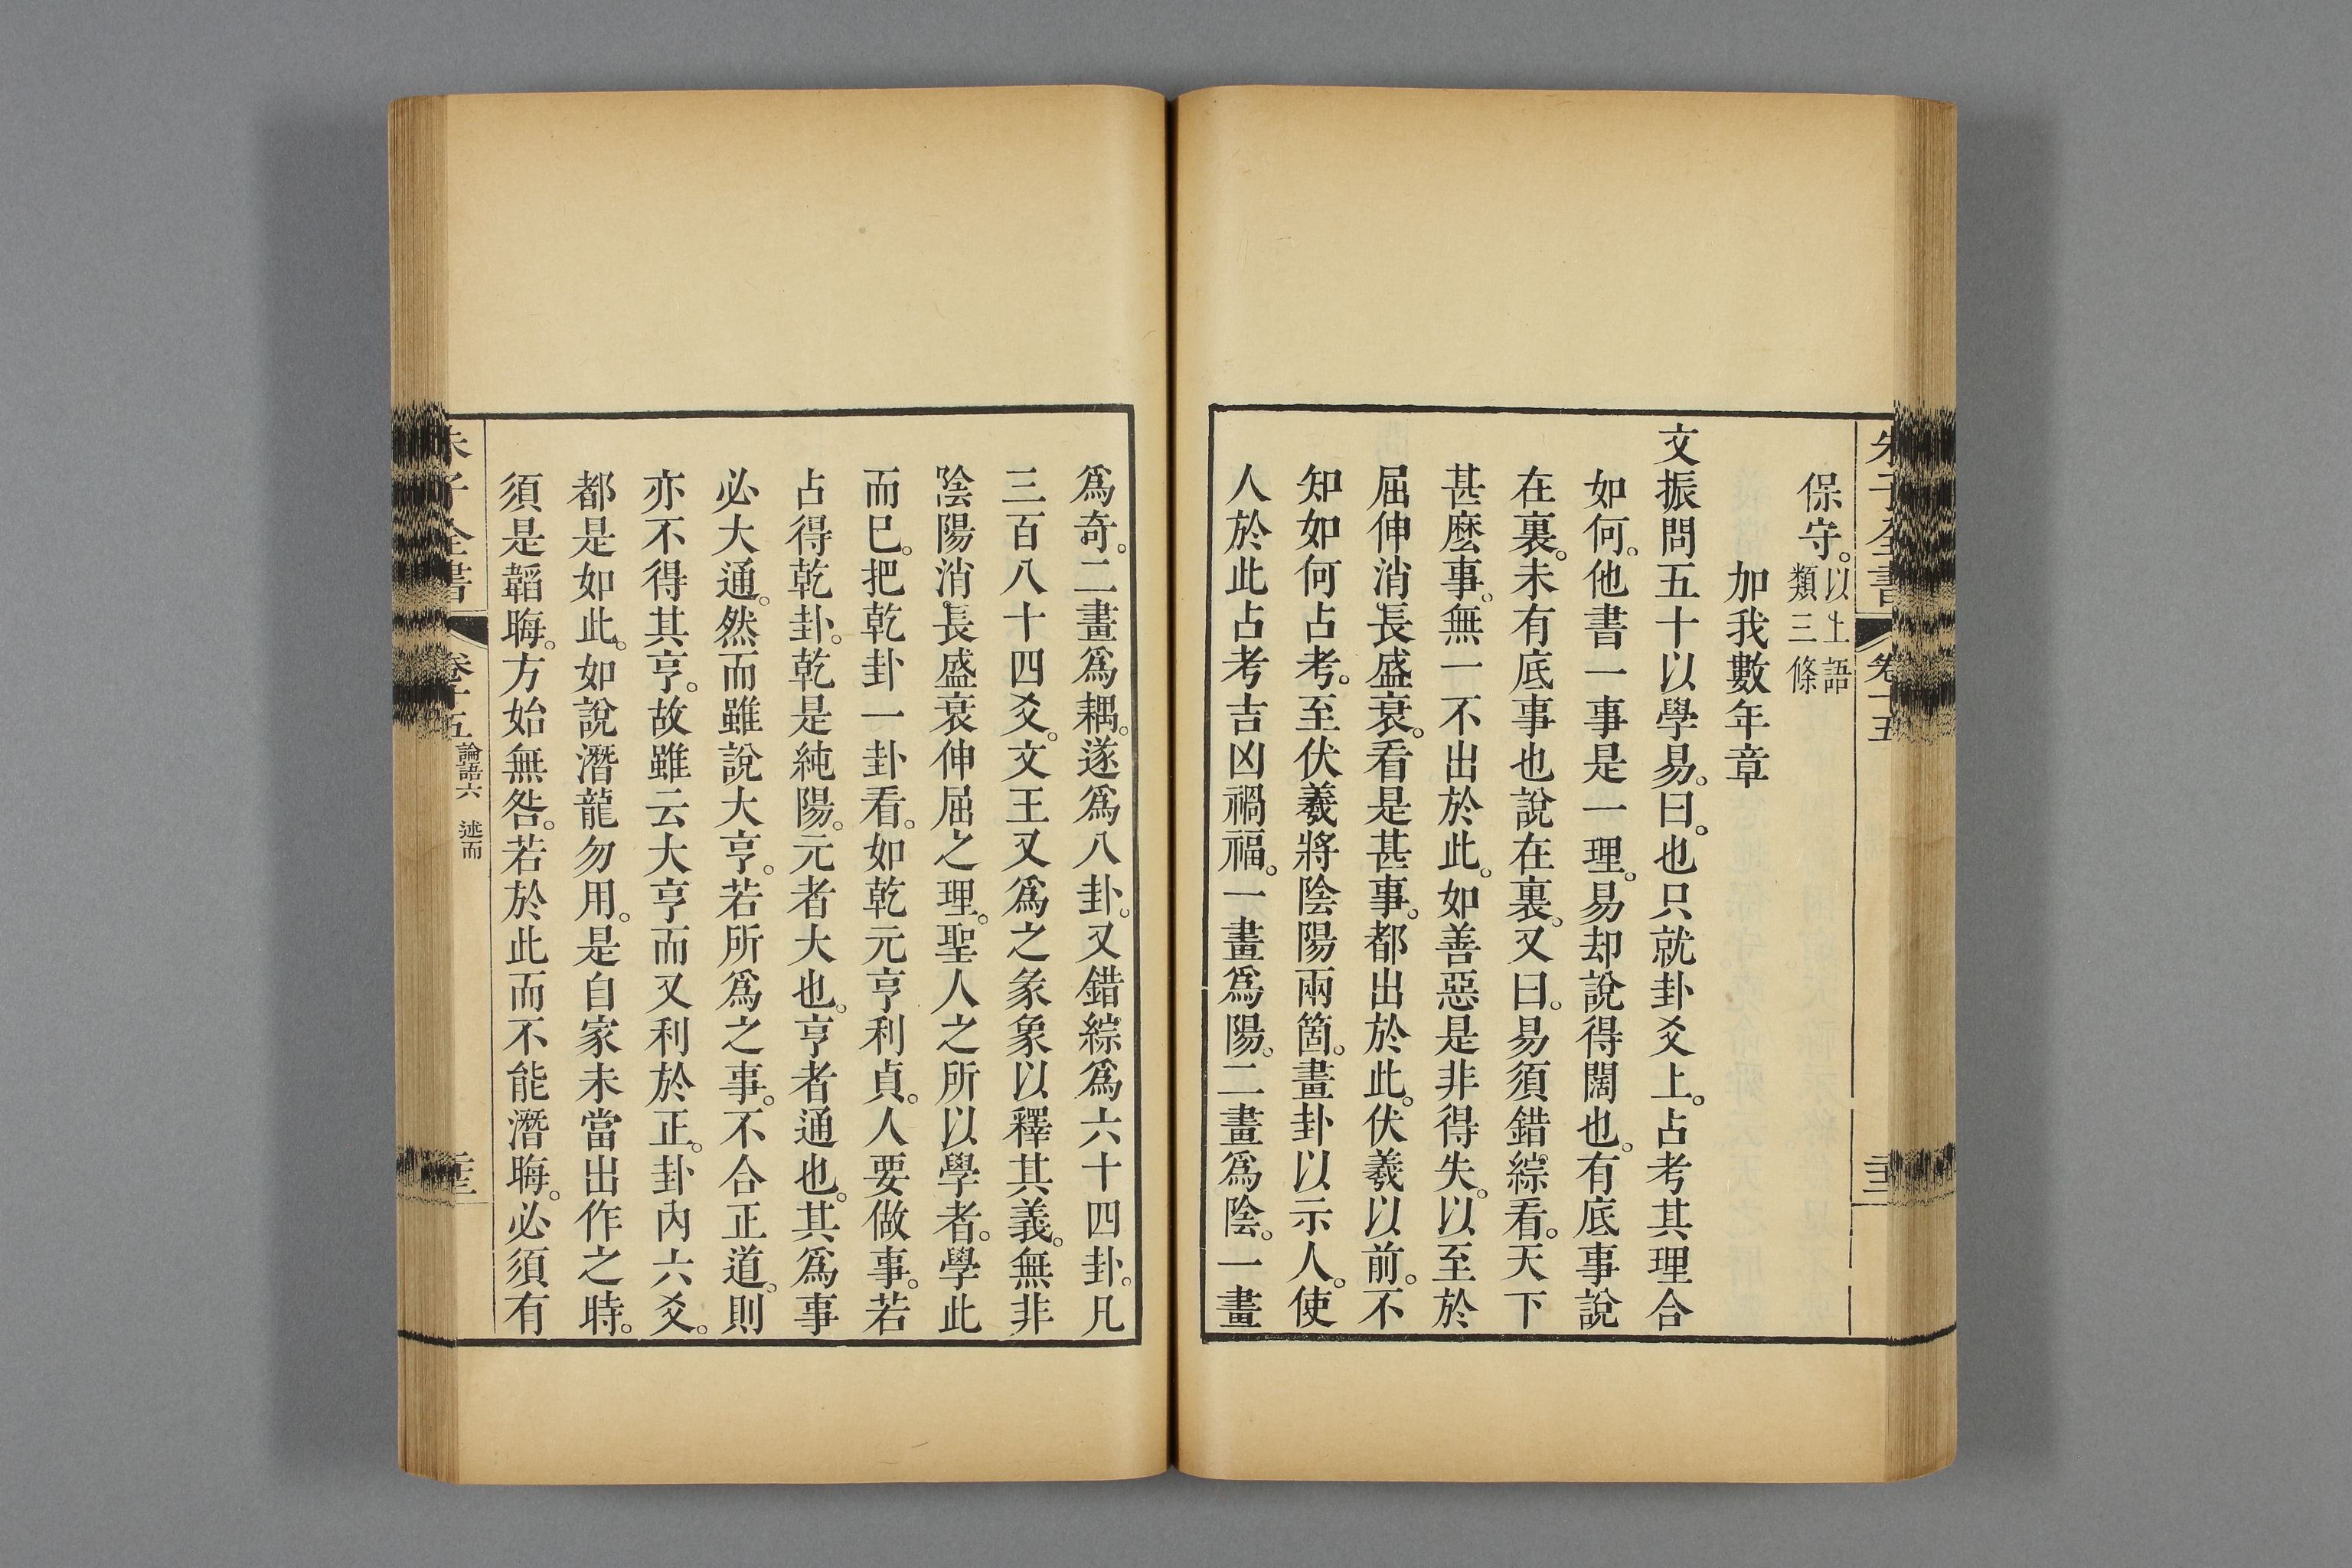 朱子全書 卷十五
保守。以上語
類三條
加我數年章
文振問五十以學易。曰。也只就卦爻上。占考其理合
如何。他書一事是一理。易却說得闊也。有底事說
在裏。未有底事也說在裏。又曰。易須錯綜看。天下
甚麽事。無一不出於此。如善惡是非得失。以至於
屈伸消長盛衰。看是甚事。都出於此。伏羲以前。不
知如何占考。至伏羲將陰陽兩箇。畫卦以示人。使
人於此占考吉凶禍福。一畫爲陽。二畫爲陰。一畫
爲奇。二畫爲耦。遂爲八卦。又錯綜爲六十四卦。凡
三百八十四爻。文王又爲之彖象以釋其義。無非
陰陽消長盛衰伸屈之理。聖人之所以學者。學此
而已。把乾卦一卦看。如乾元亨利貞。人要做事。若
占得乾卦。乾是純陽。元者大也。亨者通也。其爲事
必大通。然而雖說大亨。若所爲之事。不合正道。則
亦不得其亨。故雖云大亨而又利於正。卦內六爻。
都是如此。如說潛龍勿用。是自家未當出作之時。
須是韜晦。方始無咎。若於此而不能潛晦。必須有
朱子全書 卷十五 論語六 述而